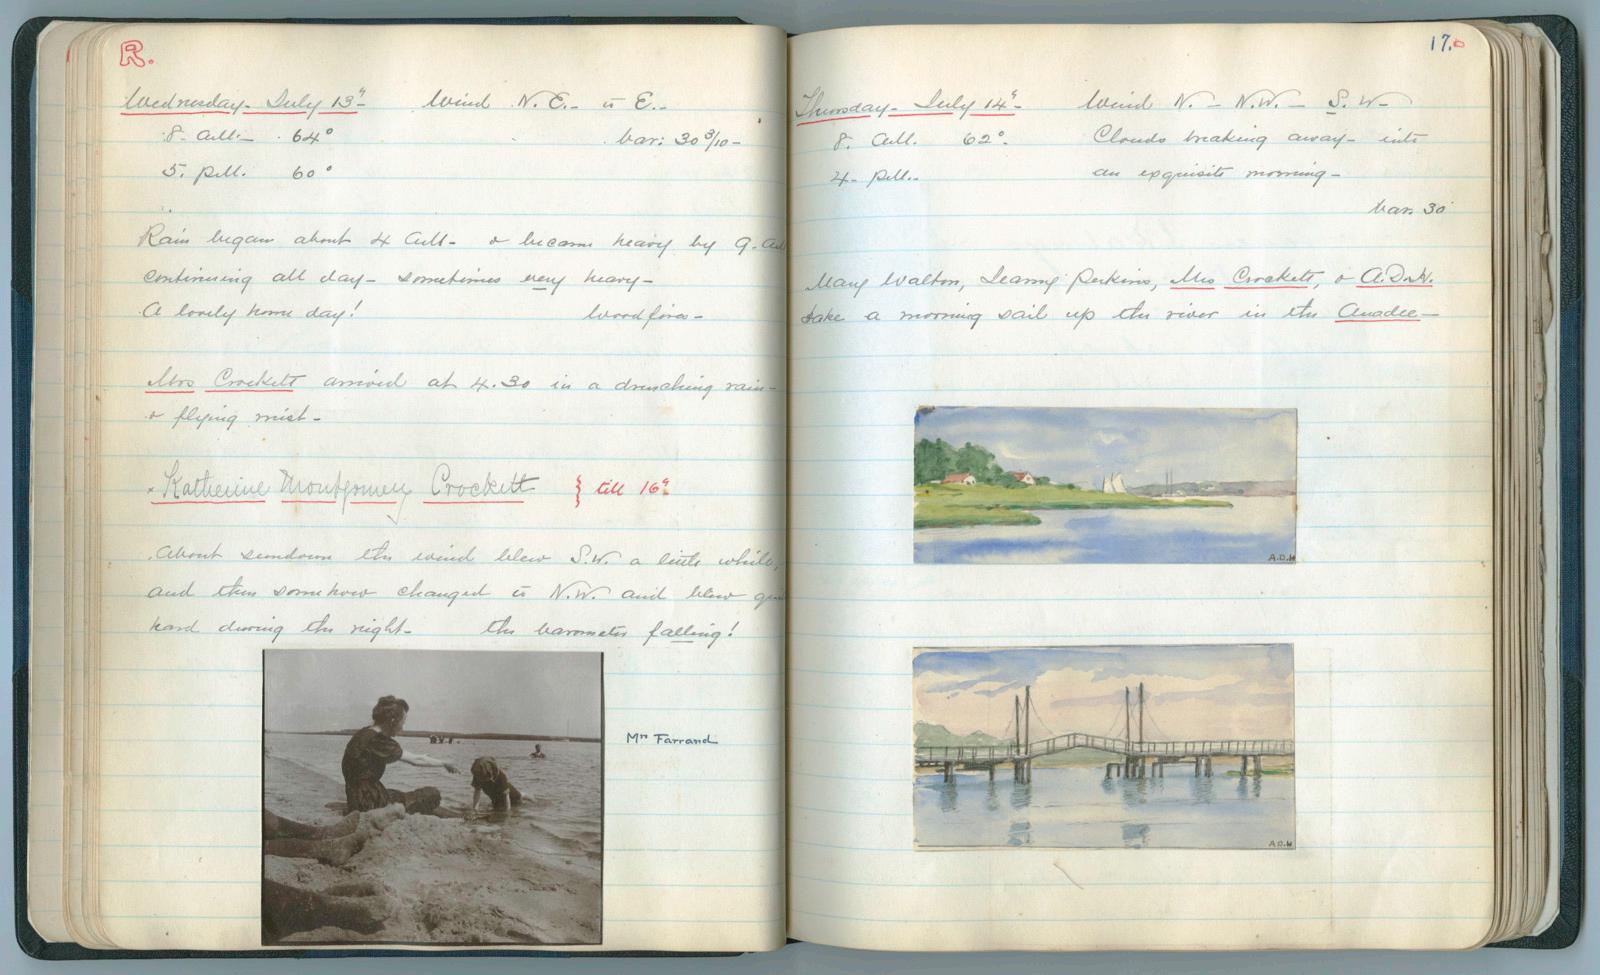 R.
Wednesday- July 13th- Wind N.E.- to E.-
8. A.M.- 64°
bar: 30 3/10-
5. P.M. 60°
Rain began about 4 A.M.- & became heavy by 9. A.M.
continuing all day- sometimes very heavy-
A lovely home day! Wood fires-
Mrs Crockett arrived at 4.30 in a drenching rain-
& flying mist-
Katherine Montgomery Crockett } till 16th
About sundown the wind blew S.W. a little while,
and then somehow changed to N.W. and blew
hard during the night- the barometer falling!
Mrs Farrand
17.
Thursday- July 14th- Wind N.- N.W.- S.W-
8. A.M. 62°. Clouds breaking away- into
4- P.M.- an exquisite morning-
bar. 30
Mary Walton, Jeanny Perkins, Mrs Crockett, & A.D.H.
take a morning sail up the river in the
A.D.H
A.D.H